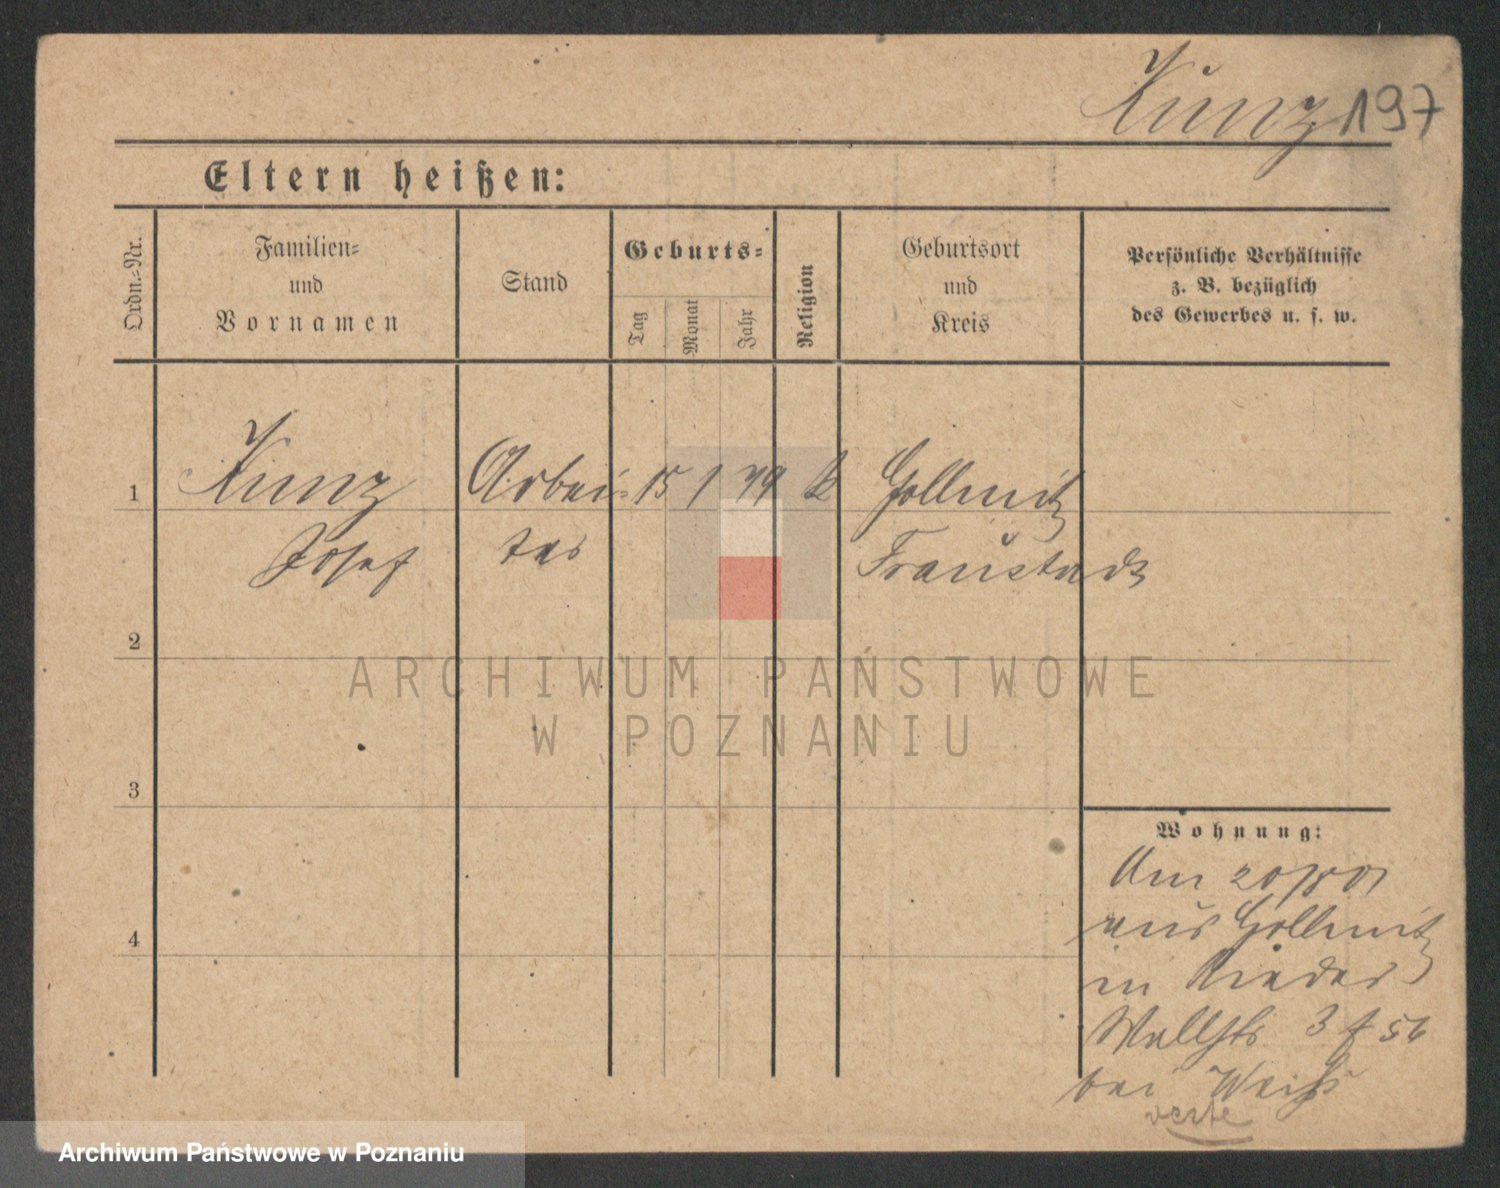 Kunz 197
Eltern heißen:
Ordn.=Nr.
Familien=
und
Vornamen
Stand
Geburts=
Tag
Monat
Jahr
Religion
Geburtsort
und
Kreis
Persönliche Verhältnisse
z. B. bezüglich
des Gewerbes u. s. w.
1 Kunz Arbei= 15 1 79 k Gollmitz
Josef ter Fraustadt
2
3
4
Wohnung:
Am
aus Gollmitz
in Rieder
Wallstr 3 f 56
bei Weiß
verte
ARCHIWUM PAŃSTWOWE
W POZNANIU
Archiwum Państwowe w Poznaniu